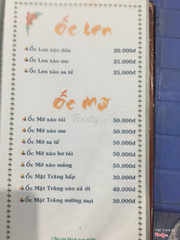 Ốc Len
Ốc Len xào dừa 20.000đ
Ốc Len xào me 25.000đ
Ốc Len xào sa tế 25.000đ
Ốc Mỡ
Ốc Mỡ xào tỏi 50.000đ
Ốc Mỡ xào me 50.000đ
Ốc Mỡ sa tế 50.000đ
Ốc Mỡ xào bơ tỏi 50.000đ
Ốc Mỡ xào măng 50.000đ
Ốc Mặt Trăng hấp 30.000đ
Ốc Mặt Trăng xào xả ớt 40.000đ
Ốc Mặt Trăng nướng mọi 30.000đ
Foody.vn